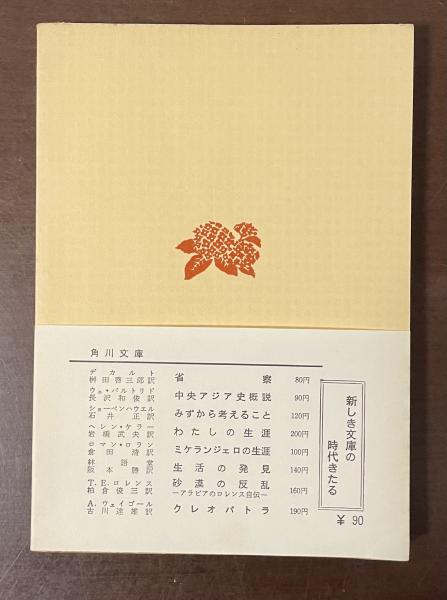 角川文庫
デカルト
桝田啓三郎訳
省察 80円
ウェ・バルトリド
長沢和俊訳
中央アジア史概説 90円
ショーペンハウエル
石井正訳
みずから考えること 120円
ヘレン・ケラー
岩橋武夫訳
わたしの生涯 200円
ロマン・ロラン
倉田清訳
ミケランジェロの生涯 100円
林語堂
阪本勝訳
生活の発見 140円
T.E.ロレンス
柏倉俊三訳
砂漠の反乱 160円
―アラビアのロレンス自伝―
A.ウェイゴール
古川達雄訳
クレオパトラ 190円
新しき文庫の
時代きたる
¥ 90